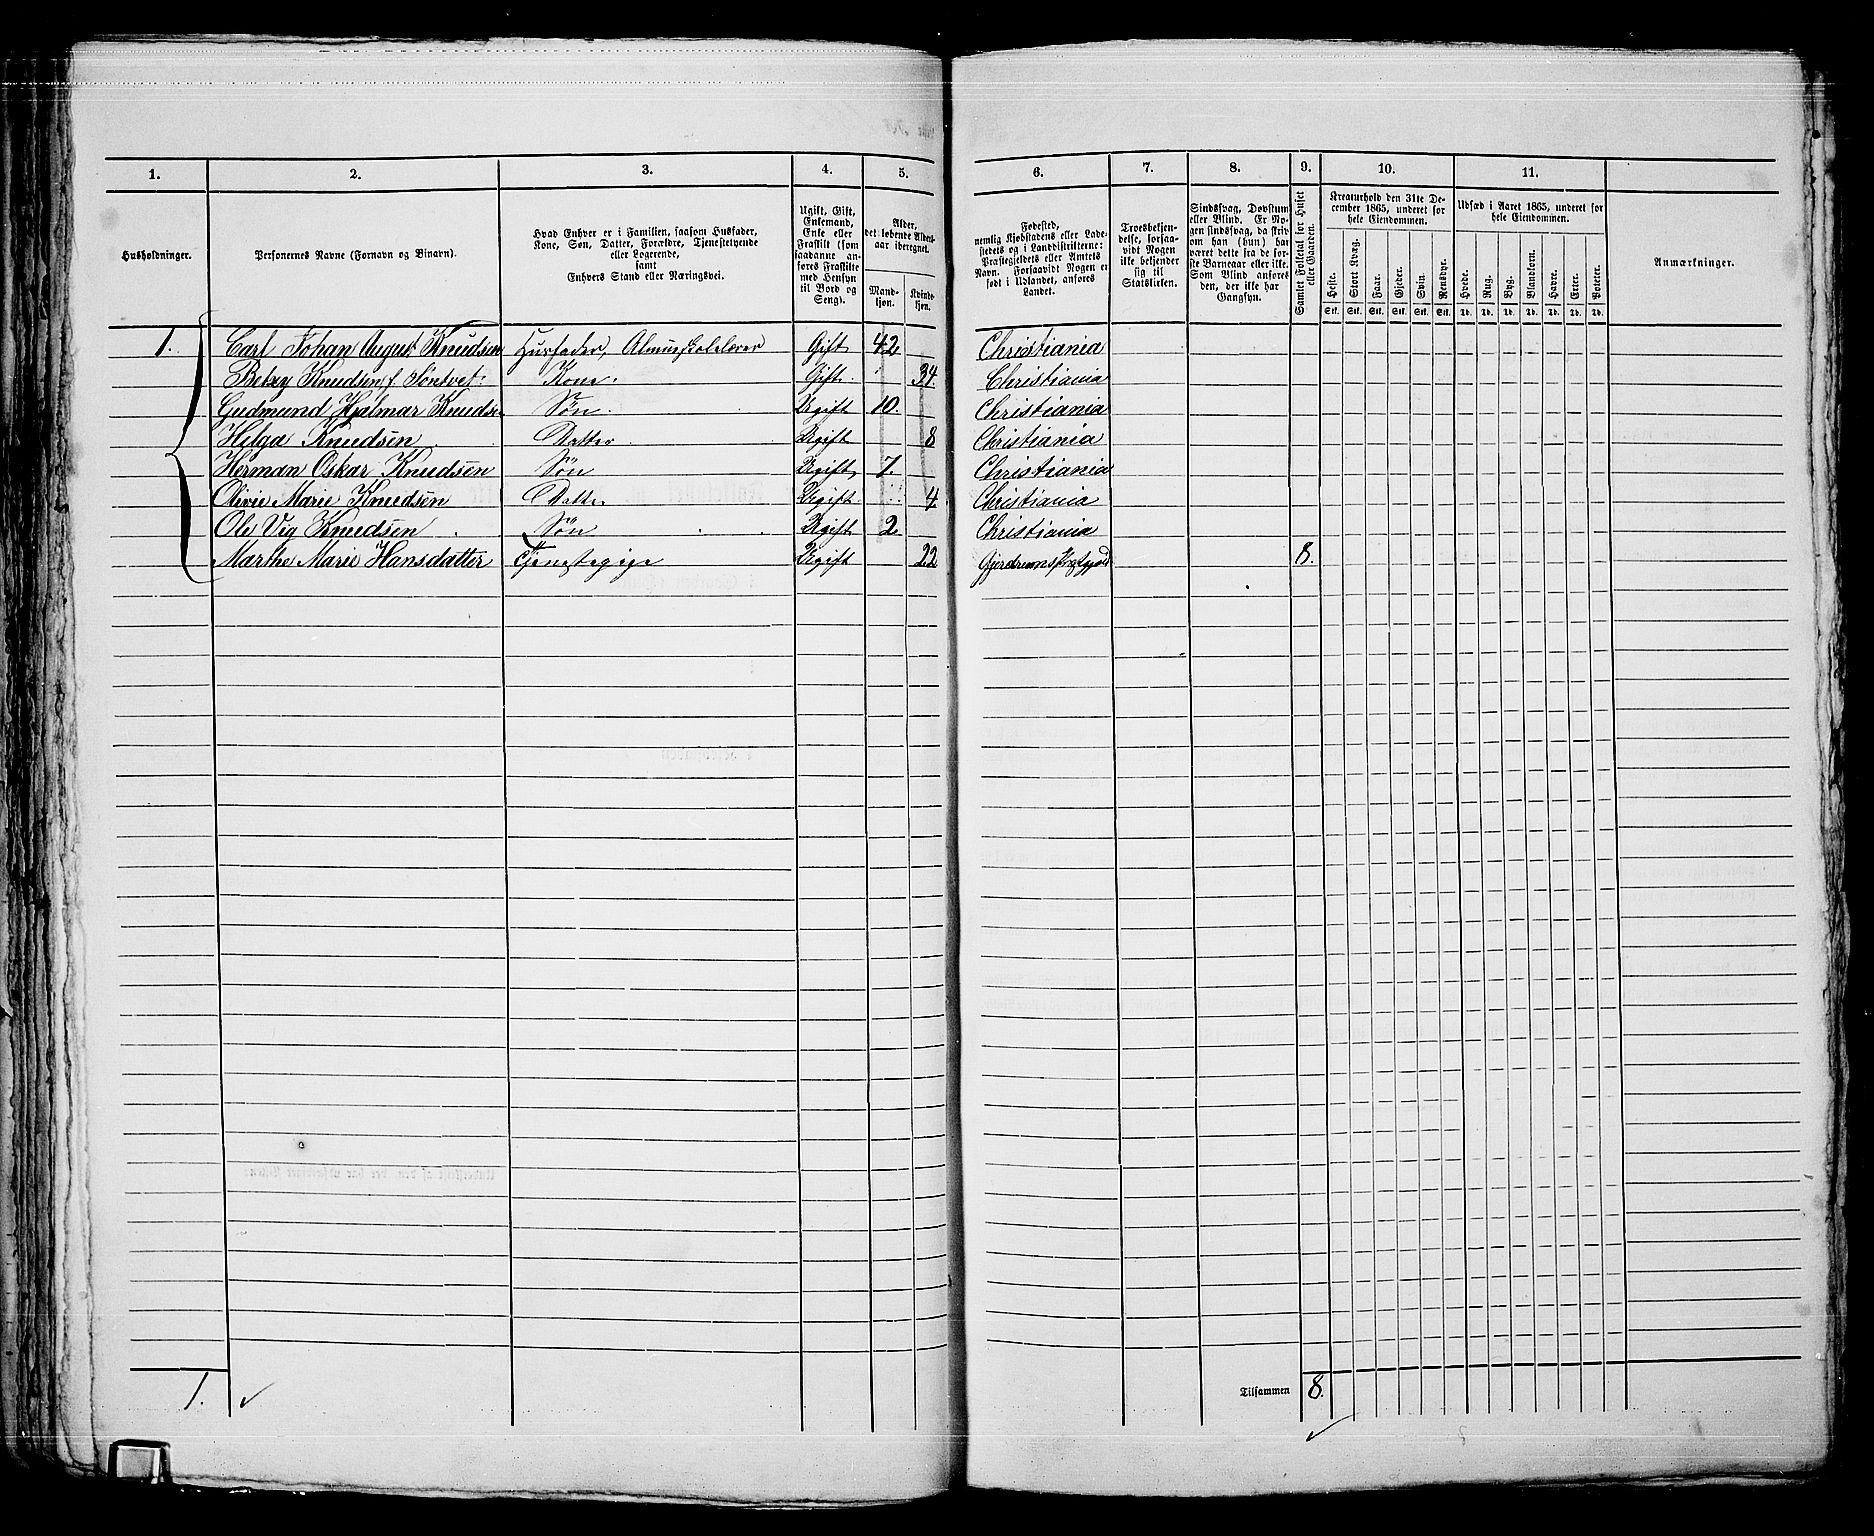 1. 2. 3. 4. 5. 6. 7. 8. 9. 10. 11.
Husholdninger.
Personernes Navne (Fornavn og Binavn).
Hvad Enhver er i Familien, saasom Husfader,
Kone, Søn, Datter, Forældre, Tjenestetyende
eller Logerende,
samt
Enhvers Stand eller Næringsvei.
Ugift, Gift,
Enkemand,
Enke eller
Fraskilt (som
saadanne an-
føres Fraskilte
med Hensyn
til Bord og
Seng).
Alder,
det løbende Alders-
aar iberegnet.
Mand-
kjøn.
Kvinde-
kjøn.
Fødested,
nemlig Kjøbstadens eller Lade-
stedets og i Landdistrikterne:
Præstegjeldets eller Amtets
Navn. Forsaavidt Nogen er
født i Udlandet, anføres
Landet.
Troesbekjen-
delse, forsaa-
vidt Nogen
ikke bekjender
sig til
Statskirken.
Sindssvag, Døvstum
eller Blind. Er No-
gen sindssvag, da skriv
om han (hun) har
været dette fra de før-
ste Barneaar eller ikke.
Som Blind anføres
den, der ikke har
Gangsyn.
Samlet Folketal for Huset
eller Gaarden.
Kreaturhold den 31te De-
cember 1865, underet for
hele Eiendommen.
Heste. Stort Kvæg. Faar. Gjeder. Svin. Rensdyr.
Stk. Stk. Stk. Stk. Stk. Stk.
Udsæd i Aaret 1865, underet for
hele Eiendommen.
Hvede. Rug. Byg. Blandkorn. Havre. Erter. Poteter.
Td. Td. Td. Td. Td. Td. Td.
Anmærkninger.
1. Carl Johan August Knudsen Husfader, Almueskolelærer Gift 42 Christiania
Betzy Knudsen f. Søntvet: Kone. Gift. 34. Christiania
Gudmund Hjalmar Knudsen Søn. Ugift 10. Christiania
Helga Knudsen Datter. Ugift 8 Christiania
Herman Oskar Knudsen Søn Ugift. 7. Christiania
Olivie Marie Knudsen Datter Ugift. 4. Christiania
Ole Vig Knudsen Søn Ugift 2 Christiania
Marthe Marie Hansdatter Tjenestepige Ugift 22 Gjerdrums 8.
1. Tilsammen 8.